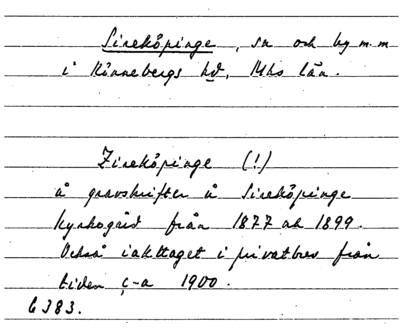 Sireköpinge, sn och by m.m
i Rönnebergs hd, Mhs län.
Zireköpinge (!)
å gravskrifter å Sireköpinge
kyrkogård från 1877 och 1899.
Också iakttaget i privatbrev från
tiden c-a 1900.
C 383.